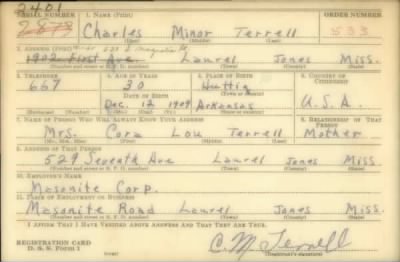 2401
SERIAL NUMBER 1. NAME (Print) ORDER NUMBER
Charles Minor Terrell 533
(First) (Middle) (Last)
2. ADDRESS (Print)
1902 First Ave. Laurel Jones Miss.
(Number and street or R. F. D. number) (Town) (County) (State)
3. TELEPHONE 4. AGE IN YEARS 5. PLACE OF BIRTH 6. COUNTRY OF CITIZENSHIP
667 30 Huttig
DATE OF BIRTH (Town or county)
Dec. 12 1909 Arkansas U.S.A.
(Mo.) (Day) (Yr.) (State or country)
7. NAME OF PERSON WHO WILL ALWAYS KNOW YOUR ADDRESS 8. RELATIONSHIP OF THAT PERSON
Mrs. Cora Lou Terrell Mother
(Mr., Mrs., Miss) (First) (Middle) (Last)
9. ADDRESS OF THAT PERSON
529 Seventh Ave Laurel Jones Miss.
(Number and street or R. F. D. number) (Town) (County) (State)
10. EMPLOYER'S NAME
Masonite Corp.
11. PLACE OF EMPLOYMENT OR BUSINESS
Masonite Road Laurel Jones Miss.
(Number and street or R. F. D. number) (Town) (County) (State)
I AFFIRM THAT I HAVE VERIFIED ABOVE ANSWERS AND THAT THEY ARE TRUE.
REGISTRATION CARD
D. S. S. Form 1 (over) C M Terrell
(Registrant's signature)